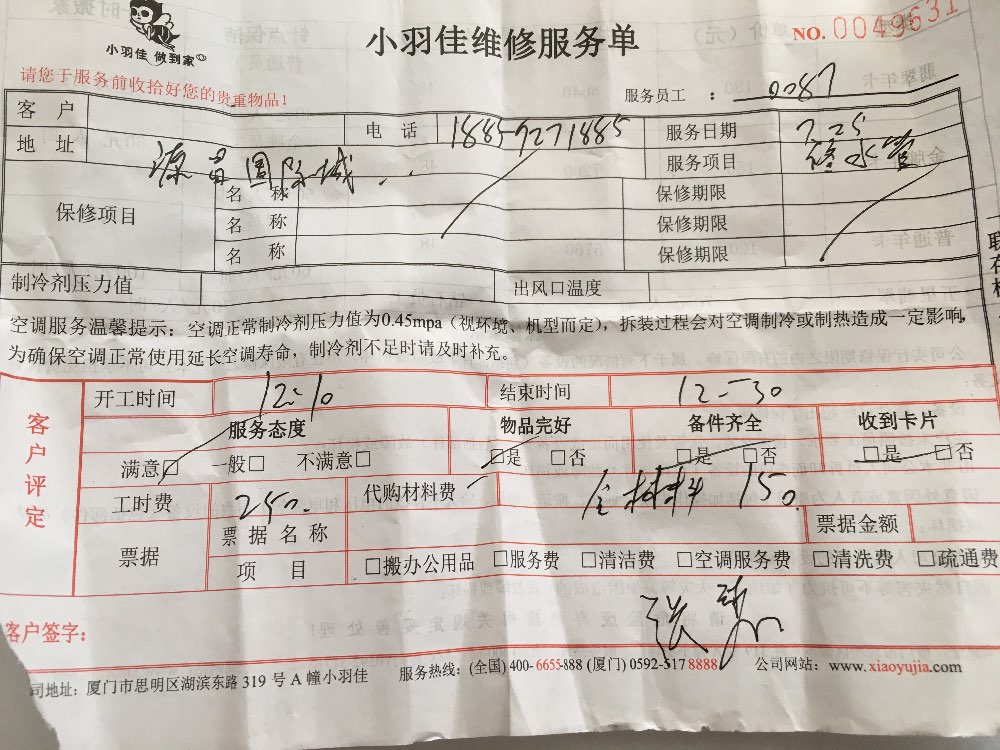 小羽佳 做到家
小羽佳维修服务单
NO. 0049631
请您于服务前收拾好您的贵重物品！
服务员工 ： 0087
客 户
电 话 18859271885 服务日期 7.25
地 址 源昌国际城
服务项目 修水管
保修项目
名 称 保修期限
名 称 保修期限
名 称 保修期限
制冷剂压力值 出风口温度
空调服务温馨提示：空调正常制冷剂压力值为0.45mpa（视环境、机型而定），拆装过程会对空调制冷或制热造成一定影响，
为确保空调正常使用延长空调寿命，制冷剂不足时请及时补充。
客户评定
开工时间 12-10 结束时间 12-30
服务态度 物品完好 备件齐全 收到卡片
满意□ 一般□ 不满意□ □是 □否 □是 □否 □是 □否
工时费 250. 代购材料费 材料 150.
票据 票 据 名 称 票据金额
项 目 □搬办公用品 □服务费 □清洁费 □空调服务费 □清洗费 □疏通费
客户签字：
司地址：厦门市思明区湖滨东路 319 号 A 幢小羽佳 服务热线：(全国) 400-6655-888 (厦门) 0592-517 8888 公司网站：www.xiaoyujia.com